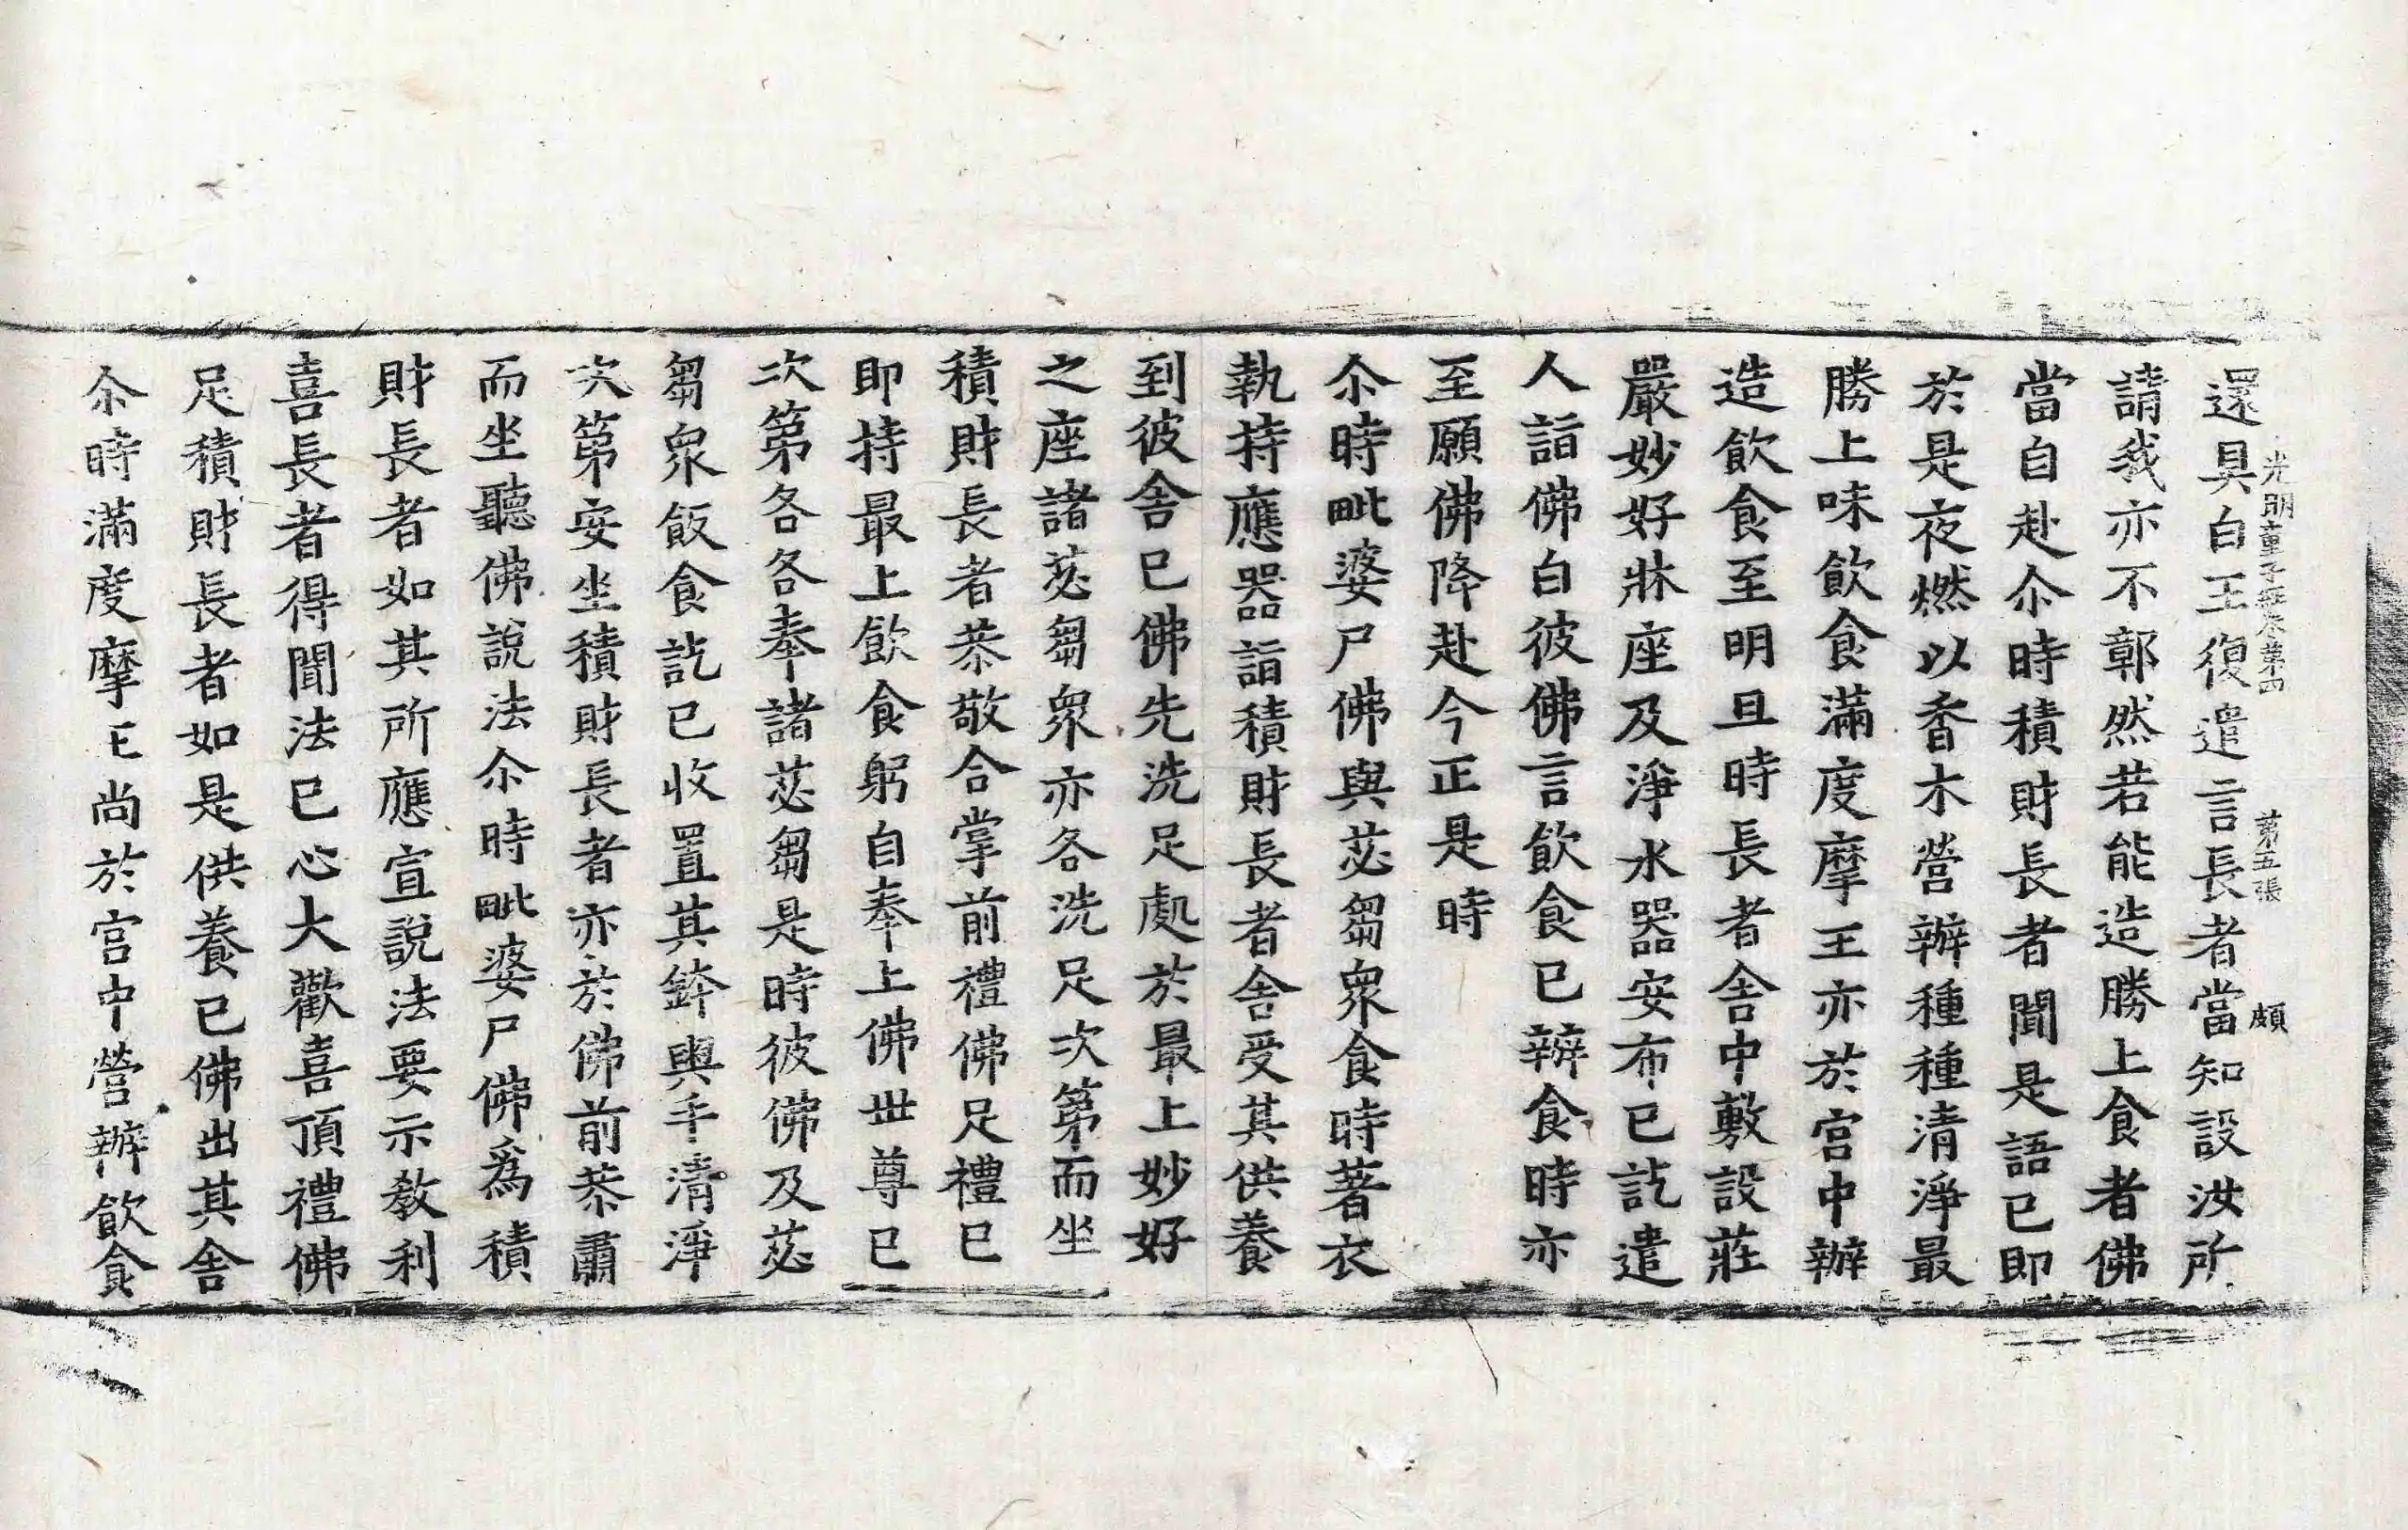 光明童子經卷第四　第五張　頗
還具白王復遣言長者當知設汝所
請我亦不鄣然若能造勝上食者佛
當自赴尒時積財長者聞是語已即
於是夜燃以香木營辦種種清淨最
勝上味飲食滿度摩王亦於宮中辦
造飲食至明旦時長者舍中敷設莊
嚴妙好牀座及淨水器安布已訖遣
人詣佛白彼佛言飲食已辦食時亦
至願佛降赴今正是時
尒時毗婆尸佛與苾芻眾食時著衣
執持應器詣積財長者舍受其供養
到彼舍已佛先洗足處於最上妙好
之座諸苾芻眾亦各洗足次第而坐
積財長者恭敬合掌前禮佛足禮已
即持最上飲食躬自奉上佛世尊已
次第各各奉諸苾芻是時彼佛及苾
芻眾飯食訖已收置其鉢與手清淨
次第安坐積財長者亦於佛前恭肅
而坐聽佛說法尒時毗婆尸佛為積
財長者如其所應宣說法要示教利
喜長者得聞法已心大歡喜頂禮佛
足積財長者如是供養已佛出其舍
尒時滿度摩王尚於宮中營辦飲食